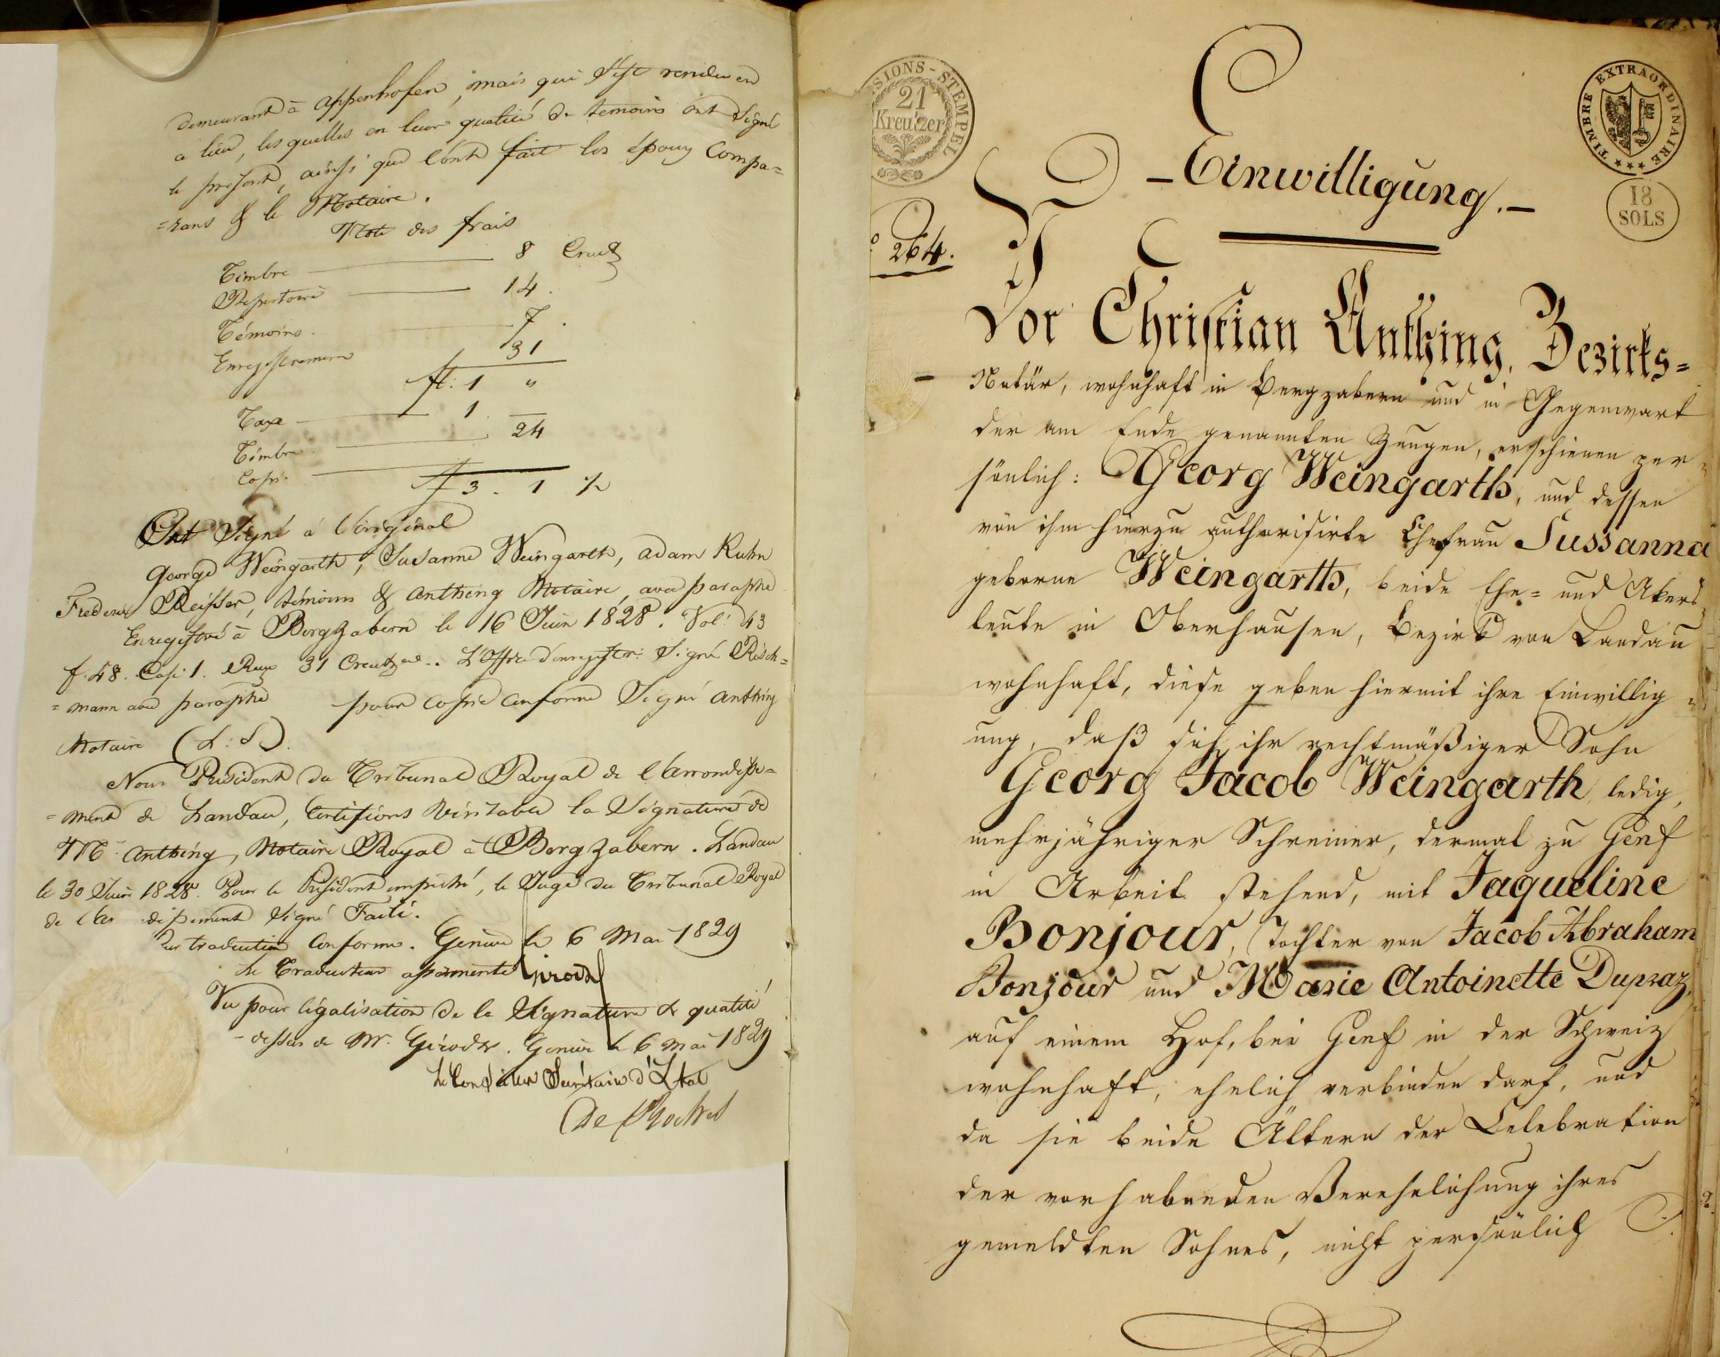 demeurant à appenhofen, mais qui s'est rendu en
a lieu, les quelles en leur qualité de temoins ont signé
le present, ainsi que l'ont fait les époux Compa=
=rans & le Notaire.
Note des frais
Timbre 8 Creutz
Repertoire 14.
Témoins. 7.
Enregistrement 31
fl. 1 "
Taxe 1. —
Timbre 24
Copi.
f 3. 1 x
Ont Signé à l'original
George Weingarth, Susanne Weingarth, adam Kuhn
Frederic Reisser, témoins & anthing Notaire, avec paraphe
Enregistré à Bergzabern le 16 Juin 1828. Vol. 43
f. 48. Cas. 1. Reçu 31 Creutzer. L'Offic. d'enregistr: Signé Risch=
=mann avec paraphe pour copie conforme Signé anthing
Notaire (L:S).
Nous President du Tribunal Royal de l'arrondisse=
=ment de Landau, Certifions véritable la Signature de
Mc. anthing, Notaire Royal à Bergzabern. Landau
le 30 Juin 1828. Pour le Président empeché, le Juge du Tribunal Royal
de l'ar dissement signé
Pr traduction Conforme. Genève le 6 Mai 1829
Le Traducteur assermenté Girodz
Vu pour légalisation de la Signature & qualité
-dessus de Mr. Girodz. Genève le 6 Mai 1829
Le Conseiller Secrétaire d'Etat
De Roches
SIONS-STEMPEL
21
Kreutzer
TIMBRE EXTRAORDINAIRE
18
SOLS
Einwilligung.
264.
Vor Christian Anthing, Bezirks=
Notär, wohnhaft in Bergzabern und in Gegenwart
der am Ende genannten Zeugen, erschienen per=
sönlich: Georg Weingarth, und dessen
von ihm hierzu authorisirte Ehefrau Sussanna
geborne Weingarth, beide Ehe= und Akers
leute in Oberhausen, Bezirk von Landau
wohnhaft, diese geben hiermit ihre Einwillig=
ung, daß sich ihr rechtmäßiger Sohn
Georg Jacob Weingarth, ledig,
mehrjähriger Schreiner, dermal zu Genf
in Arbeit stehend, mit Jaqueline
Bonjour, Tochter von Jacob Abraham
Bonjour und Marie Antoinette Dupraz,
auf einem Hof, bei Genf in der Schweiz
wohnhaft, ehelich verbinden darf, und
da sie beide Ältern der Celebration
der vorhabenden Verehelichung ihres
gemeldten Sohnes, nicht persönlich